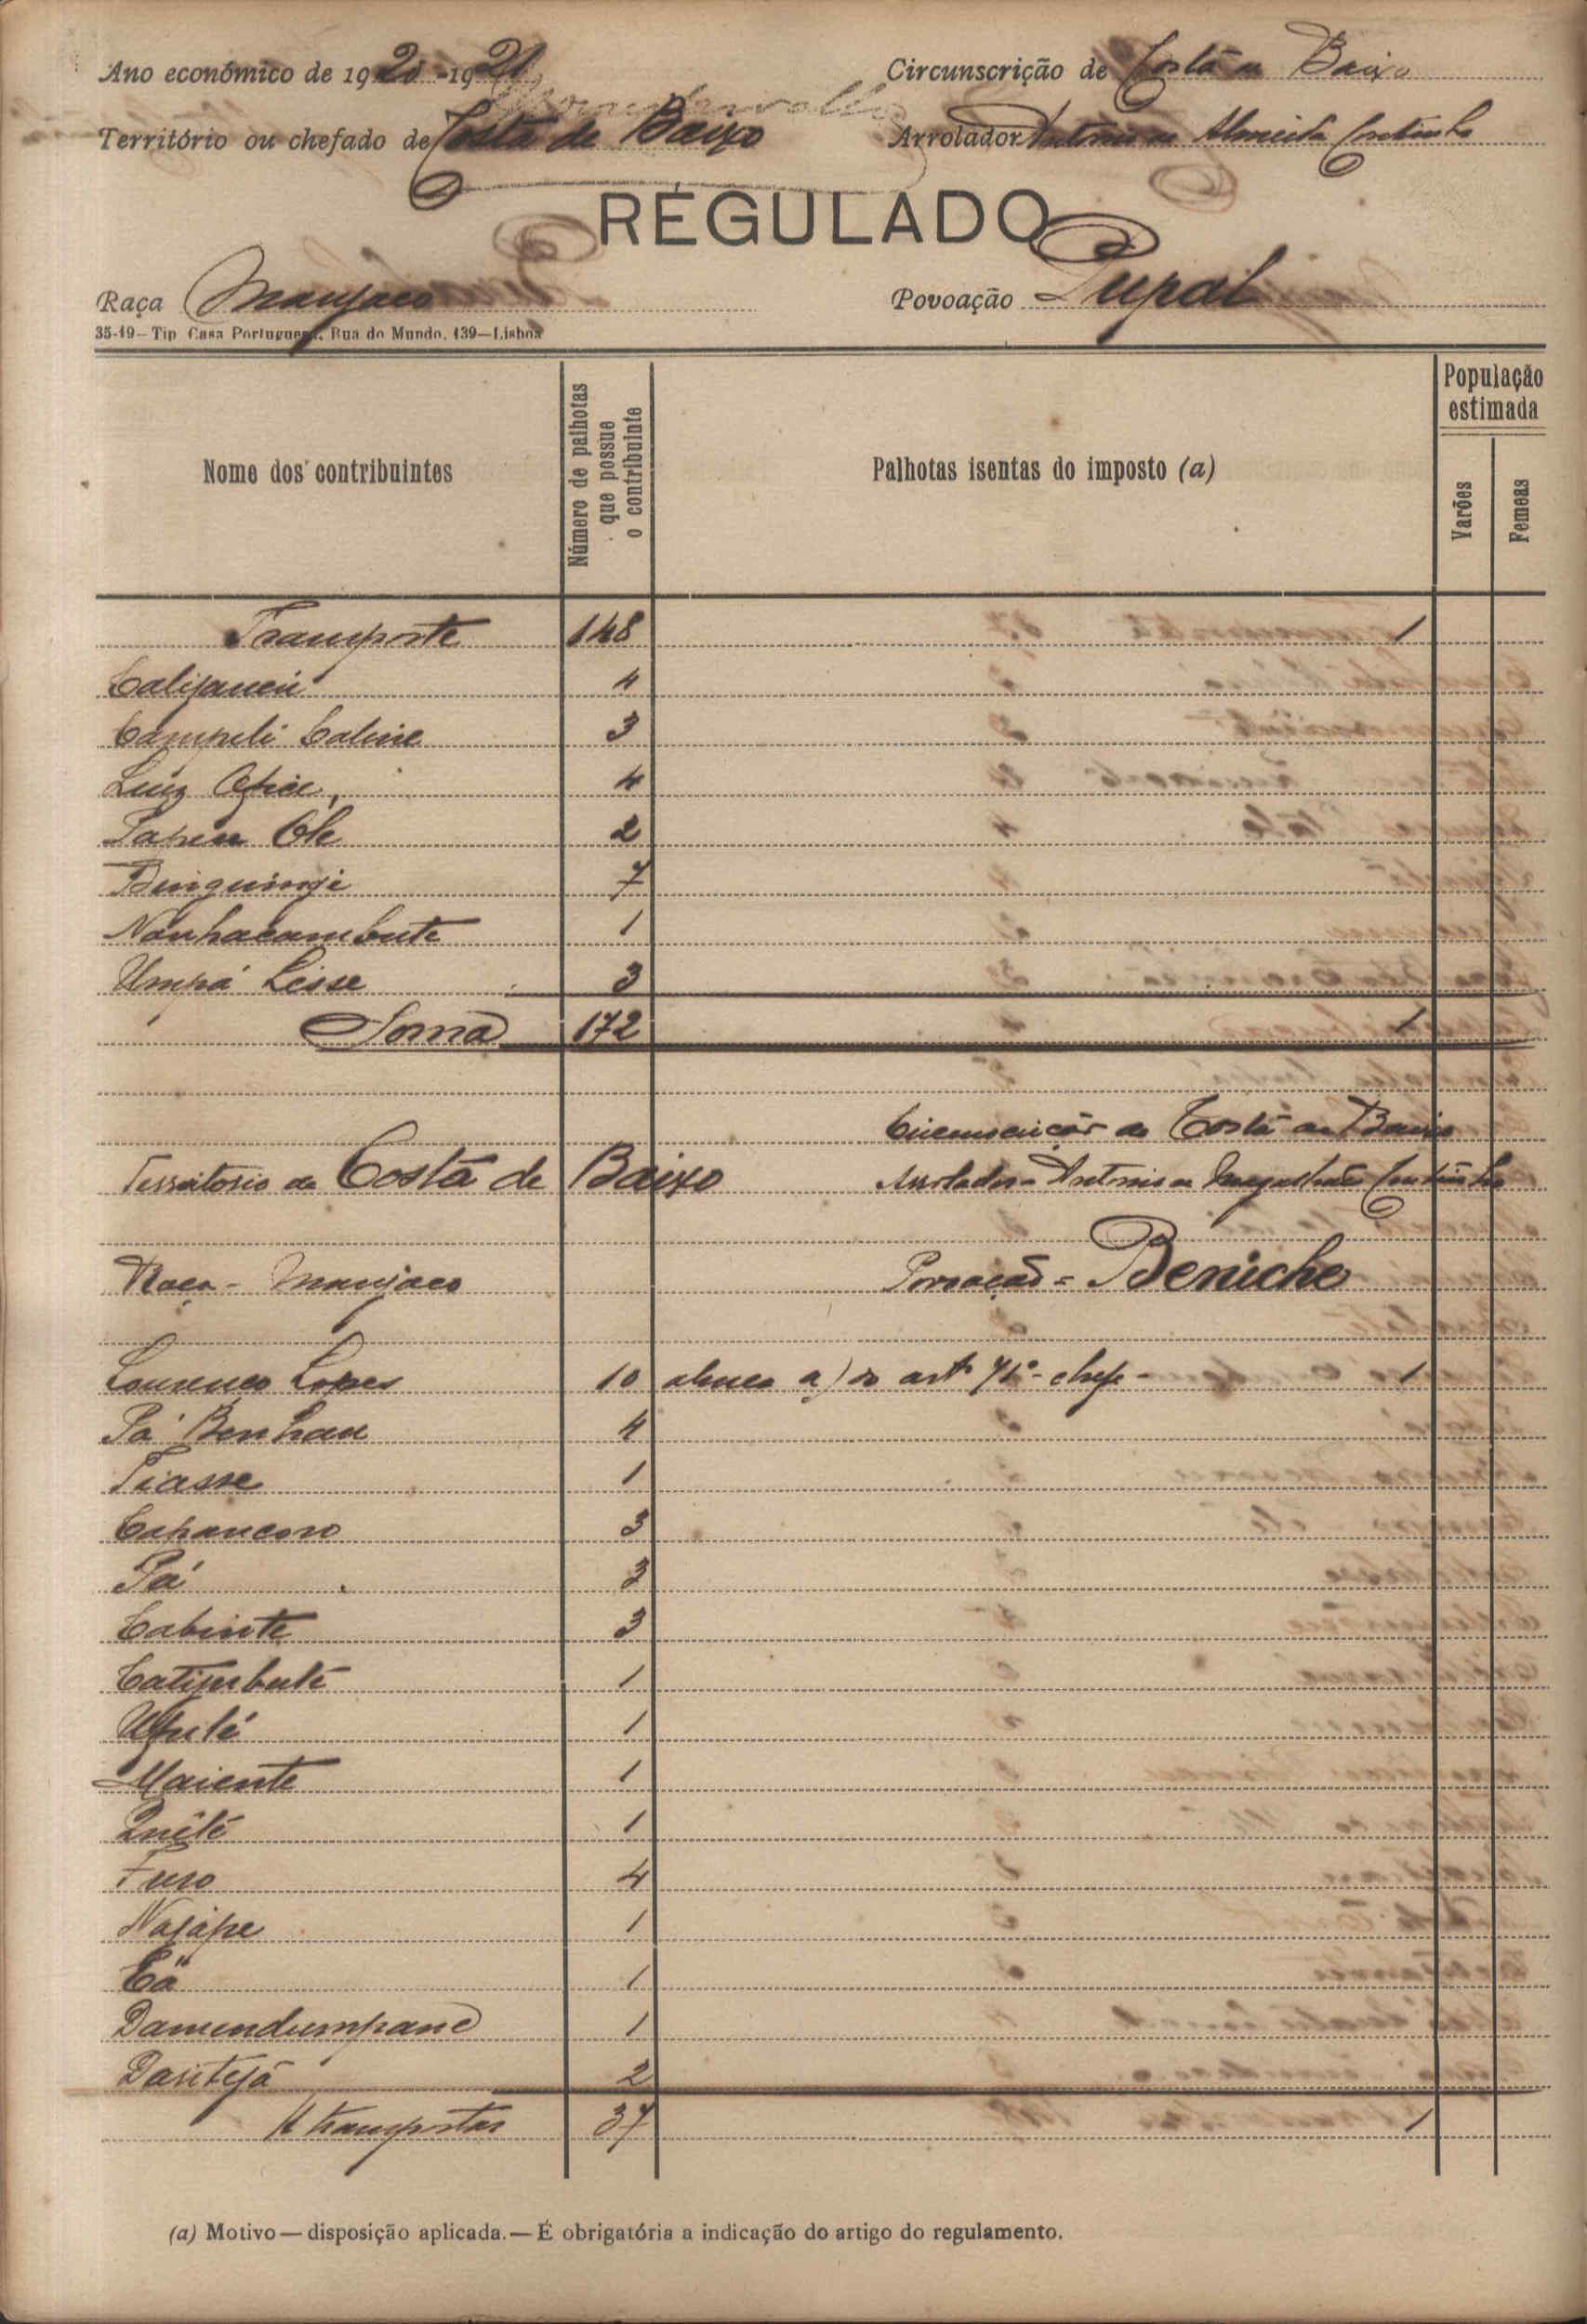 Ano económico de 1920-1921
Circunscrição de Costa de Baixo
Território ou chefado de Costa de Baixo
Arrolador António de Almeida Coutinho
REGULADO
Raça Manjaco
Povoação Pupal
35-19—Tip Casa Portuguesa. Rua do Mundo, 139—Lisboa
Nome dos contribuintes
Número de palhotas que possue o contribuinte
Palhotas isentas do imposto (a)
População estimada
Varões
Femeas
Transporte 148 1
Calijancu 4
Campili Caline 3
Luiz 4
Olé 2
Binguinje 7
Nanhacambute 1
Umpá Lisse 3
Soma 172 1
Circunscição de Costa de Baixo
Territorio de Costa de Baixo
Arrolador - Antonio de Coutinho
Raça - Manjaco
Povoação = Beniche
Lourenço Lopes 10 alinea a) do artº 71º - chefe - 1
Pá Benhau 4
Piasse 1
Capancoro 3
Pá 3
Cabinte 3
Catimbuté 1
Upulé 1
Maiente 1
Quilé 1
Furo 4
Najápe 1
Cá 1
Damendumpane 1
Dasitejá 2
A transportar 37 1
(a) Motivo—disposição aplicada.—É obrigatória a indicação do artigo do regulamento.